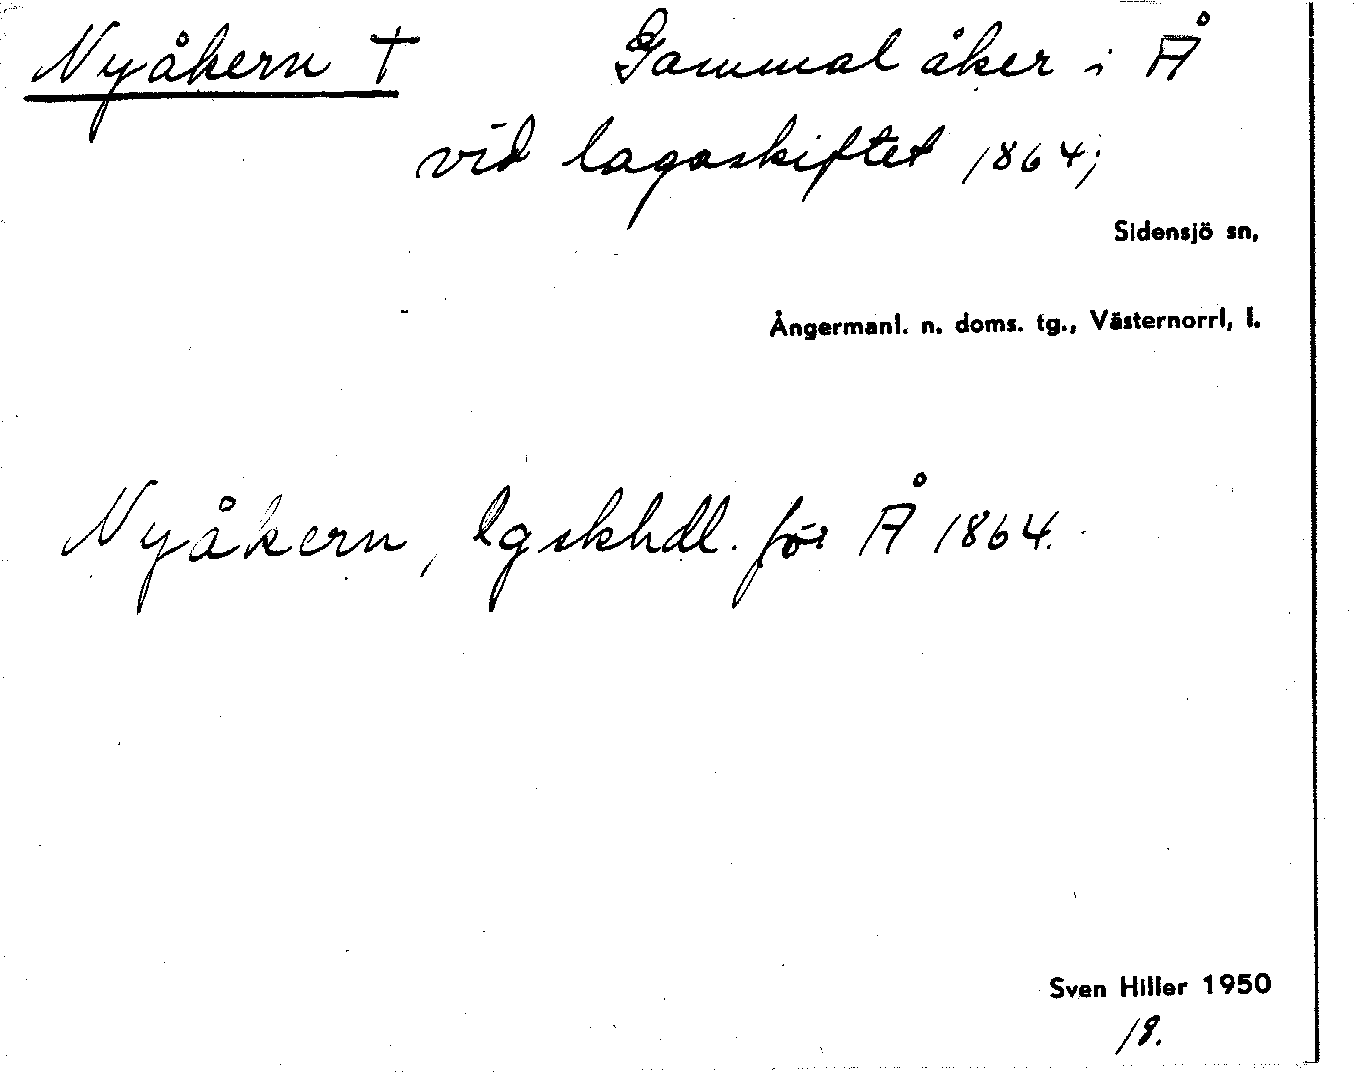 Nyåkern † Gammal åker i Å
vid lagaskiftet 1864;
Sidensjö sn,
Ångermanl. n. doms. tg., Västernorrl, l.
Nyåkern, lgskhdl. för Å 1864.
Sven Hiller 1950
18.